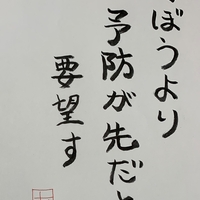 ぼうより
予防が先だと
要望す